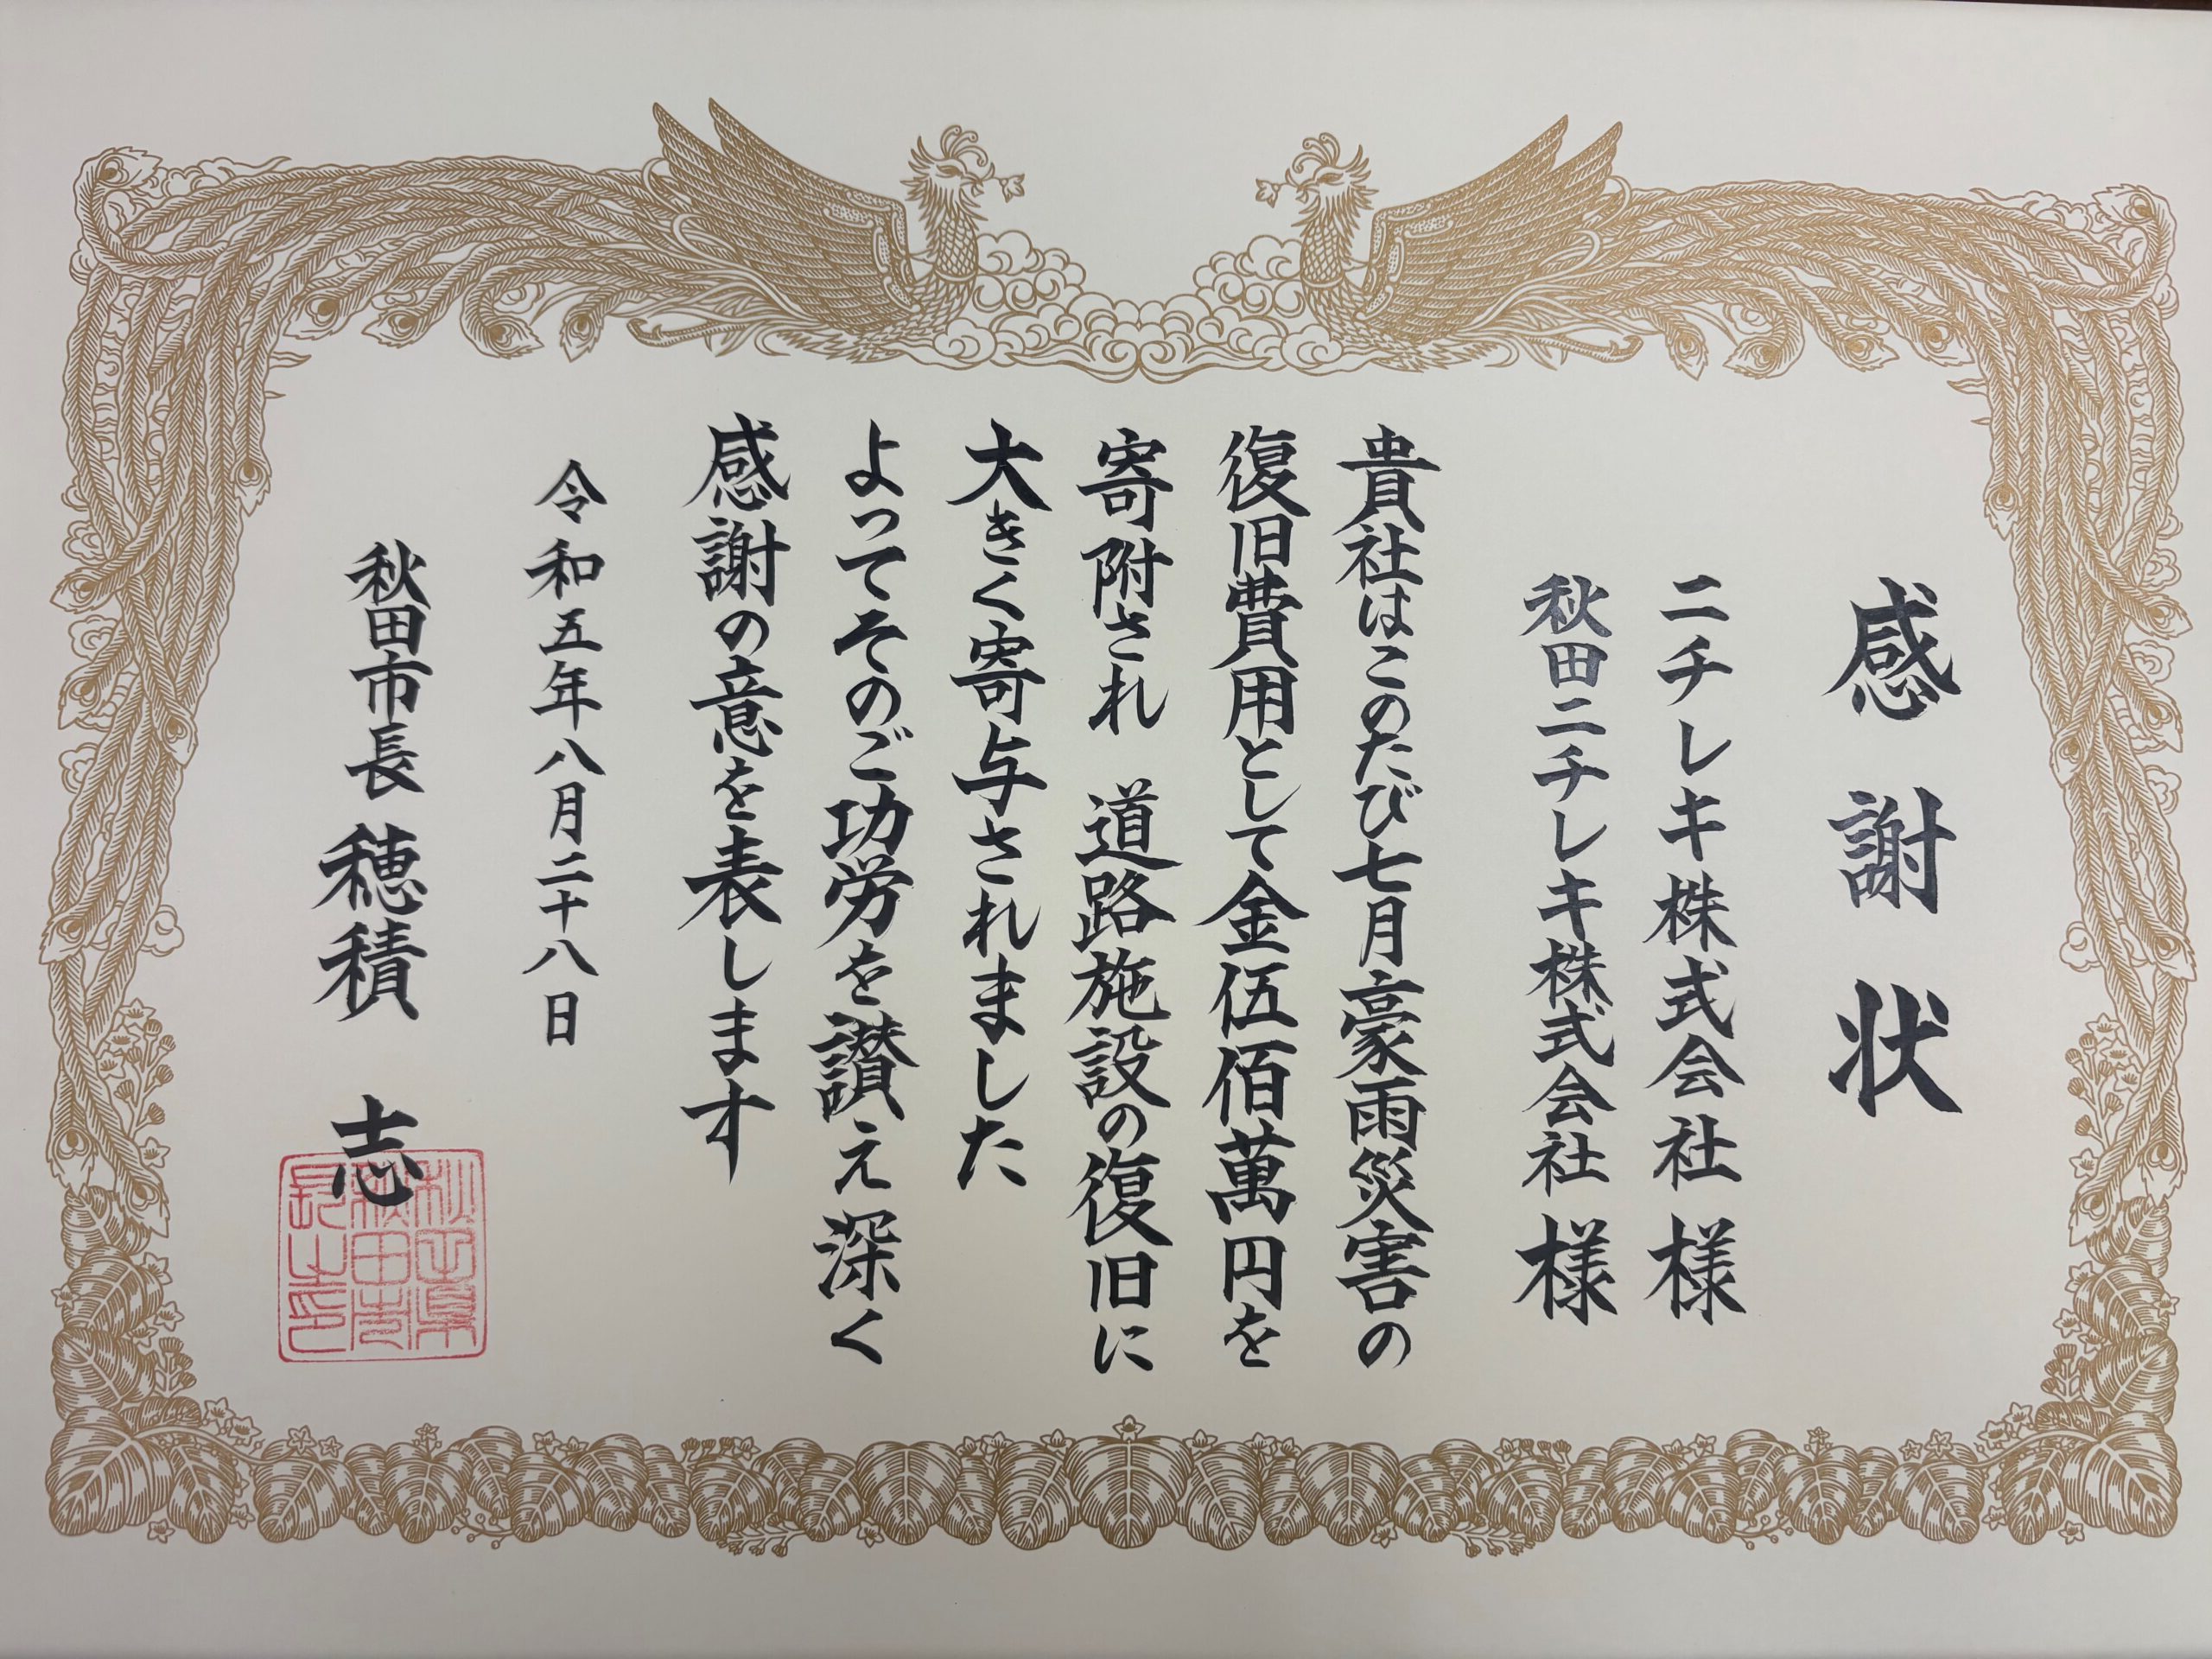 感謝状
ニチレキ株式会社様
秋田ニチレキ株式会社様
貴社はこのたび七月豪雨災害の
復旧費用として金伍佰萬円を
寄附され　道路施設の復旧に
大きく寄与されました
よってそのご功労を讃え深く
感謝の意を表します
令和五年八月二十八日
秋田市長 穂積　志
秋田県
秋田市
長之印